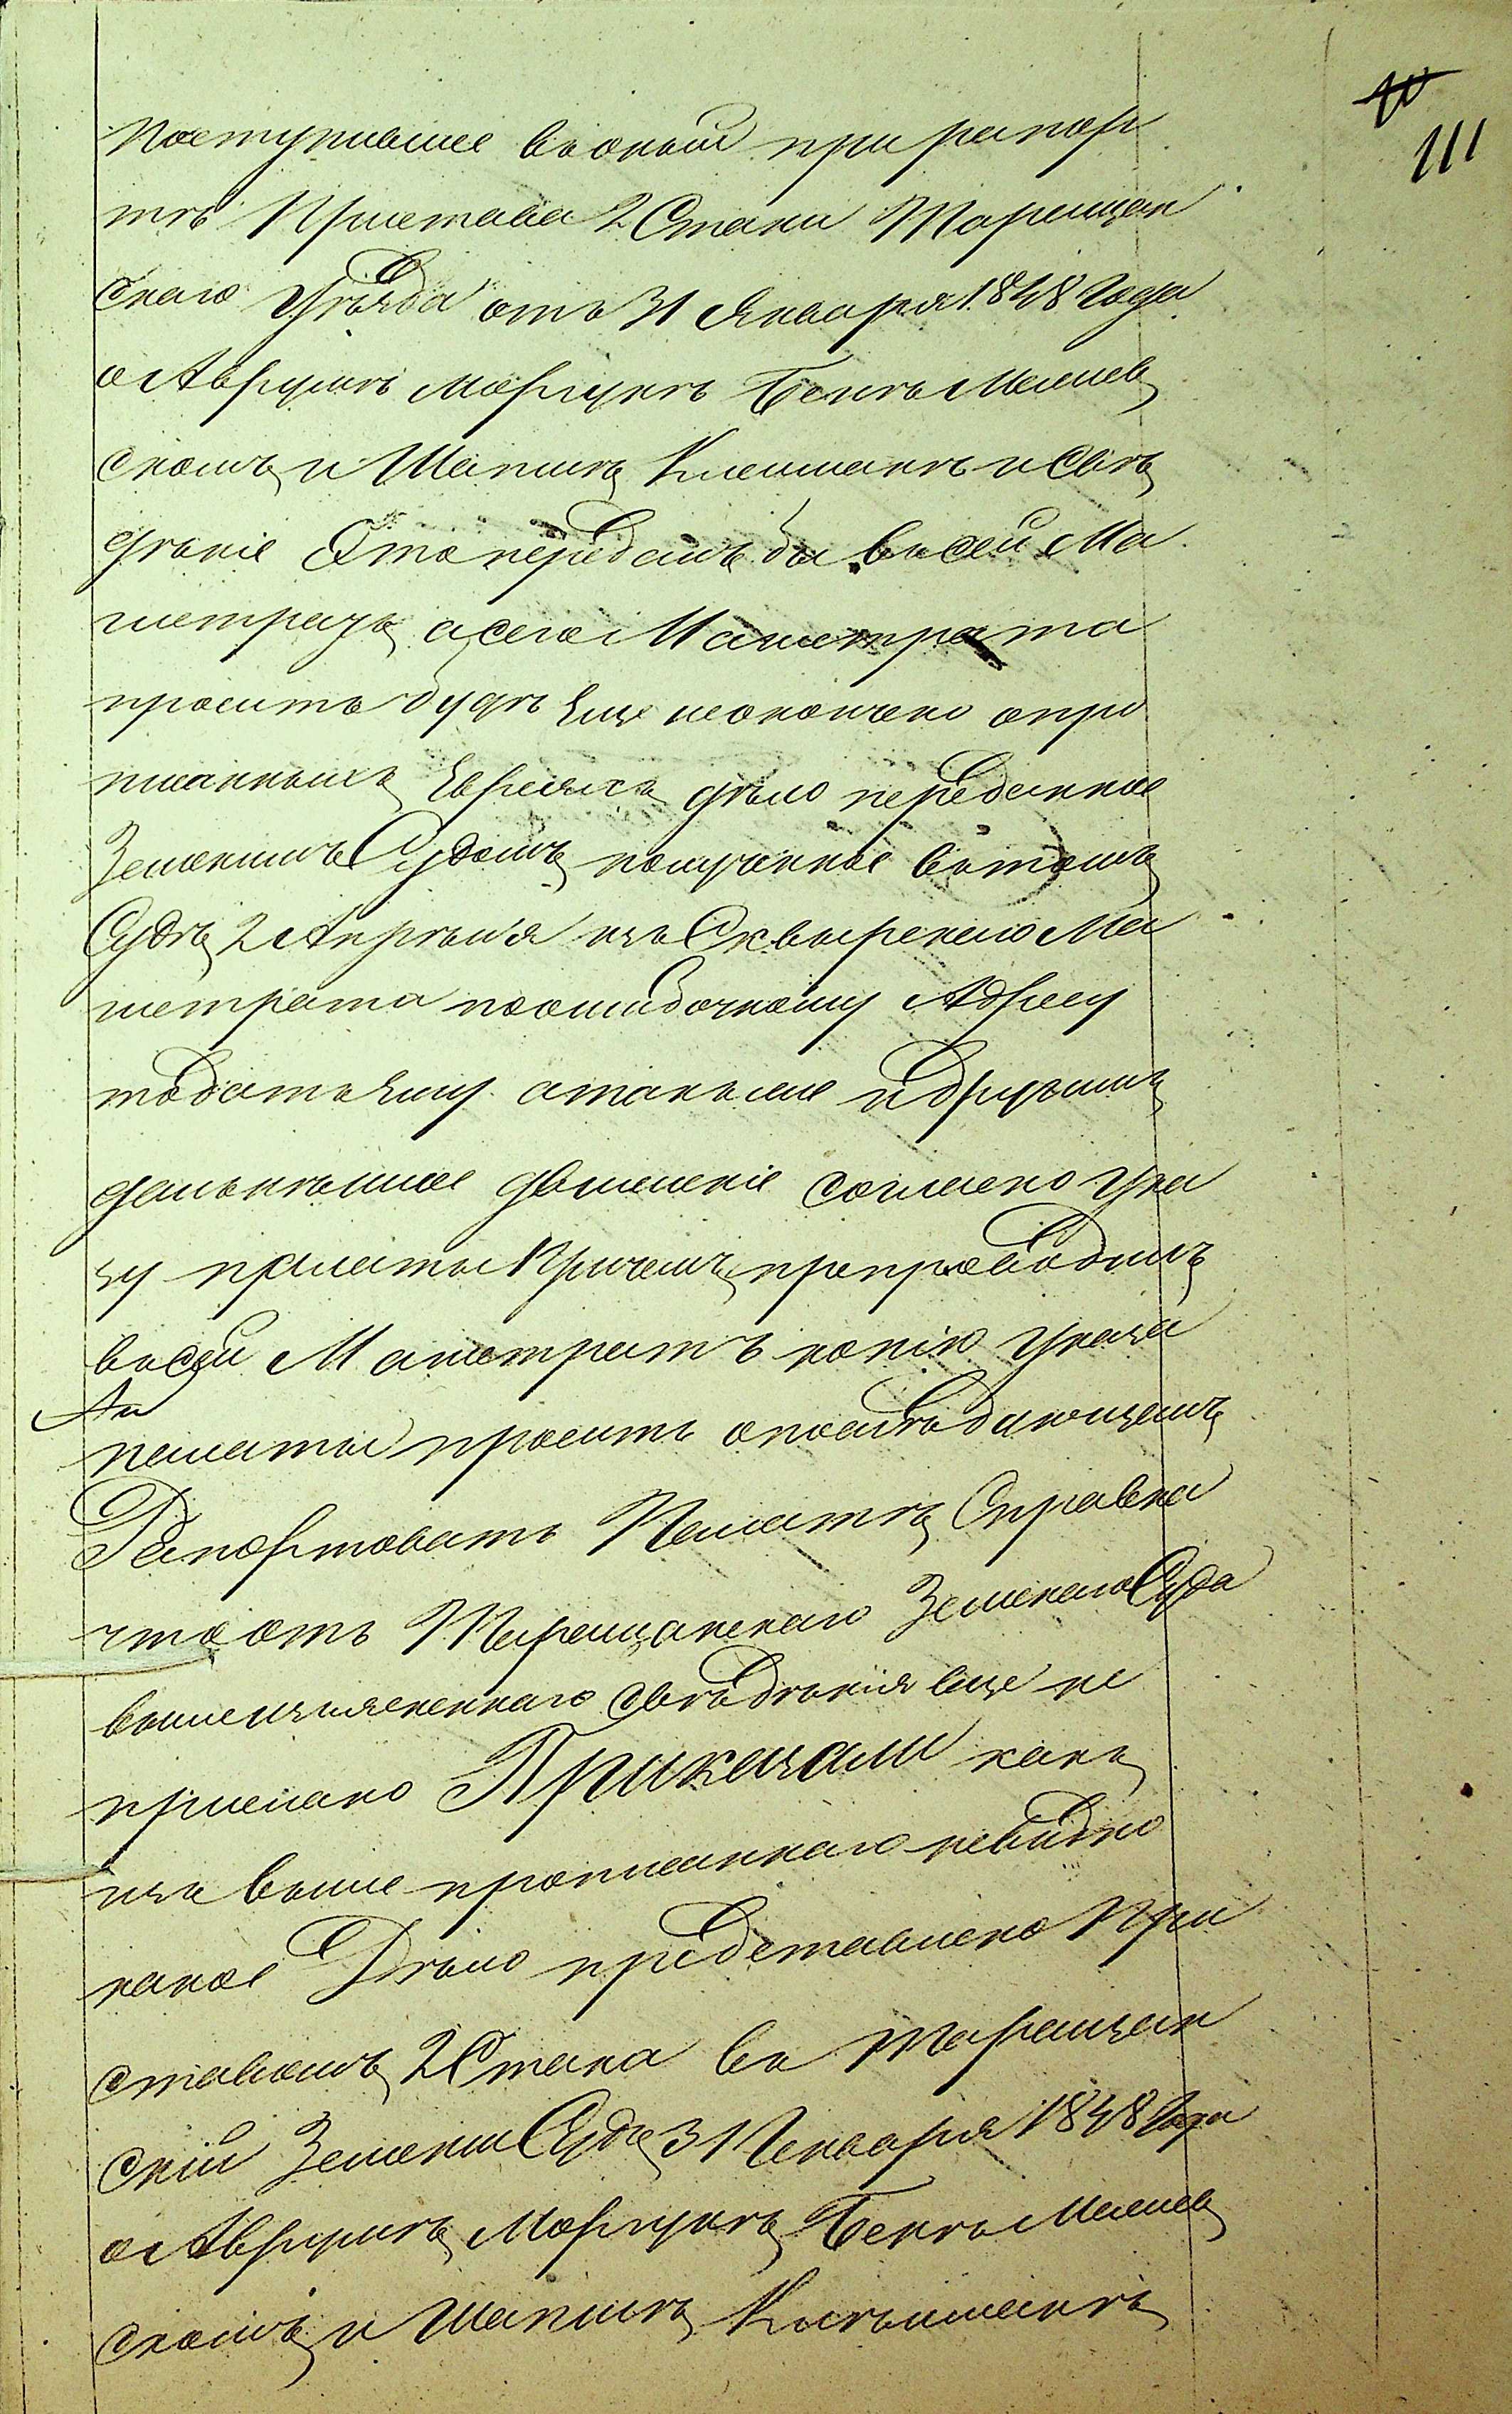 111
поступившее воный при рапор
тѣ Пристава 2 Стана Таращан
скаго уѣзда отъ 31 Января 1848 года
о Аврумѣ Моргунѣ Бенѣ Малиев
скомъ и Шапшѣ Клейманѣ и свѣ
деніе Это передать бы въ сей Ма
гистратъ, а сего Магистрата
просить будѣ еще неокончено опро
писанныхъ Евреяхъ дѣло переданное
Земскимъ Судомъ полученное вътомъ
Судѣ 2 Апрѣля изъ Сквирскаго Ма
гистрата поошибочному Адресу
тодать ему атакъ же идругимъ
дальнѣйшее движеніе согласно Ука
зу палаты Причемъ препроводить
въсей Магистратъ копію Указа
Палаты просить опослѣдующемъ
Рапортовать Палатѣ Справка
что отъ Таращанскаго Земскаго Суда
вышеизъясненнаго свѣдѣнія еще не
прислано Приказали какъ
изъ выше прописаннаго невидно
какое Дѣло представлено При
ставомъ 2 Стана въ Таращан
скій Земскій Судъ 31 Января 1848 года
о Аврумѣ Моргунѣ Бенѣ Малиев
скомъ и Шапшѣ Клейманѣ